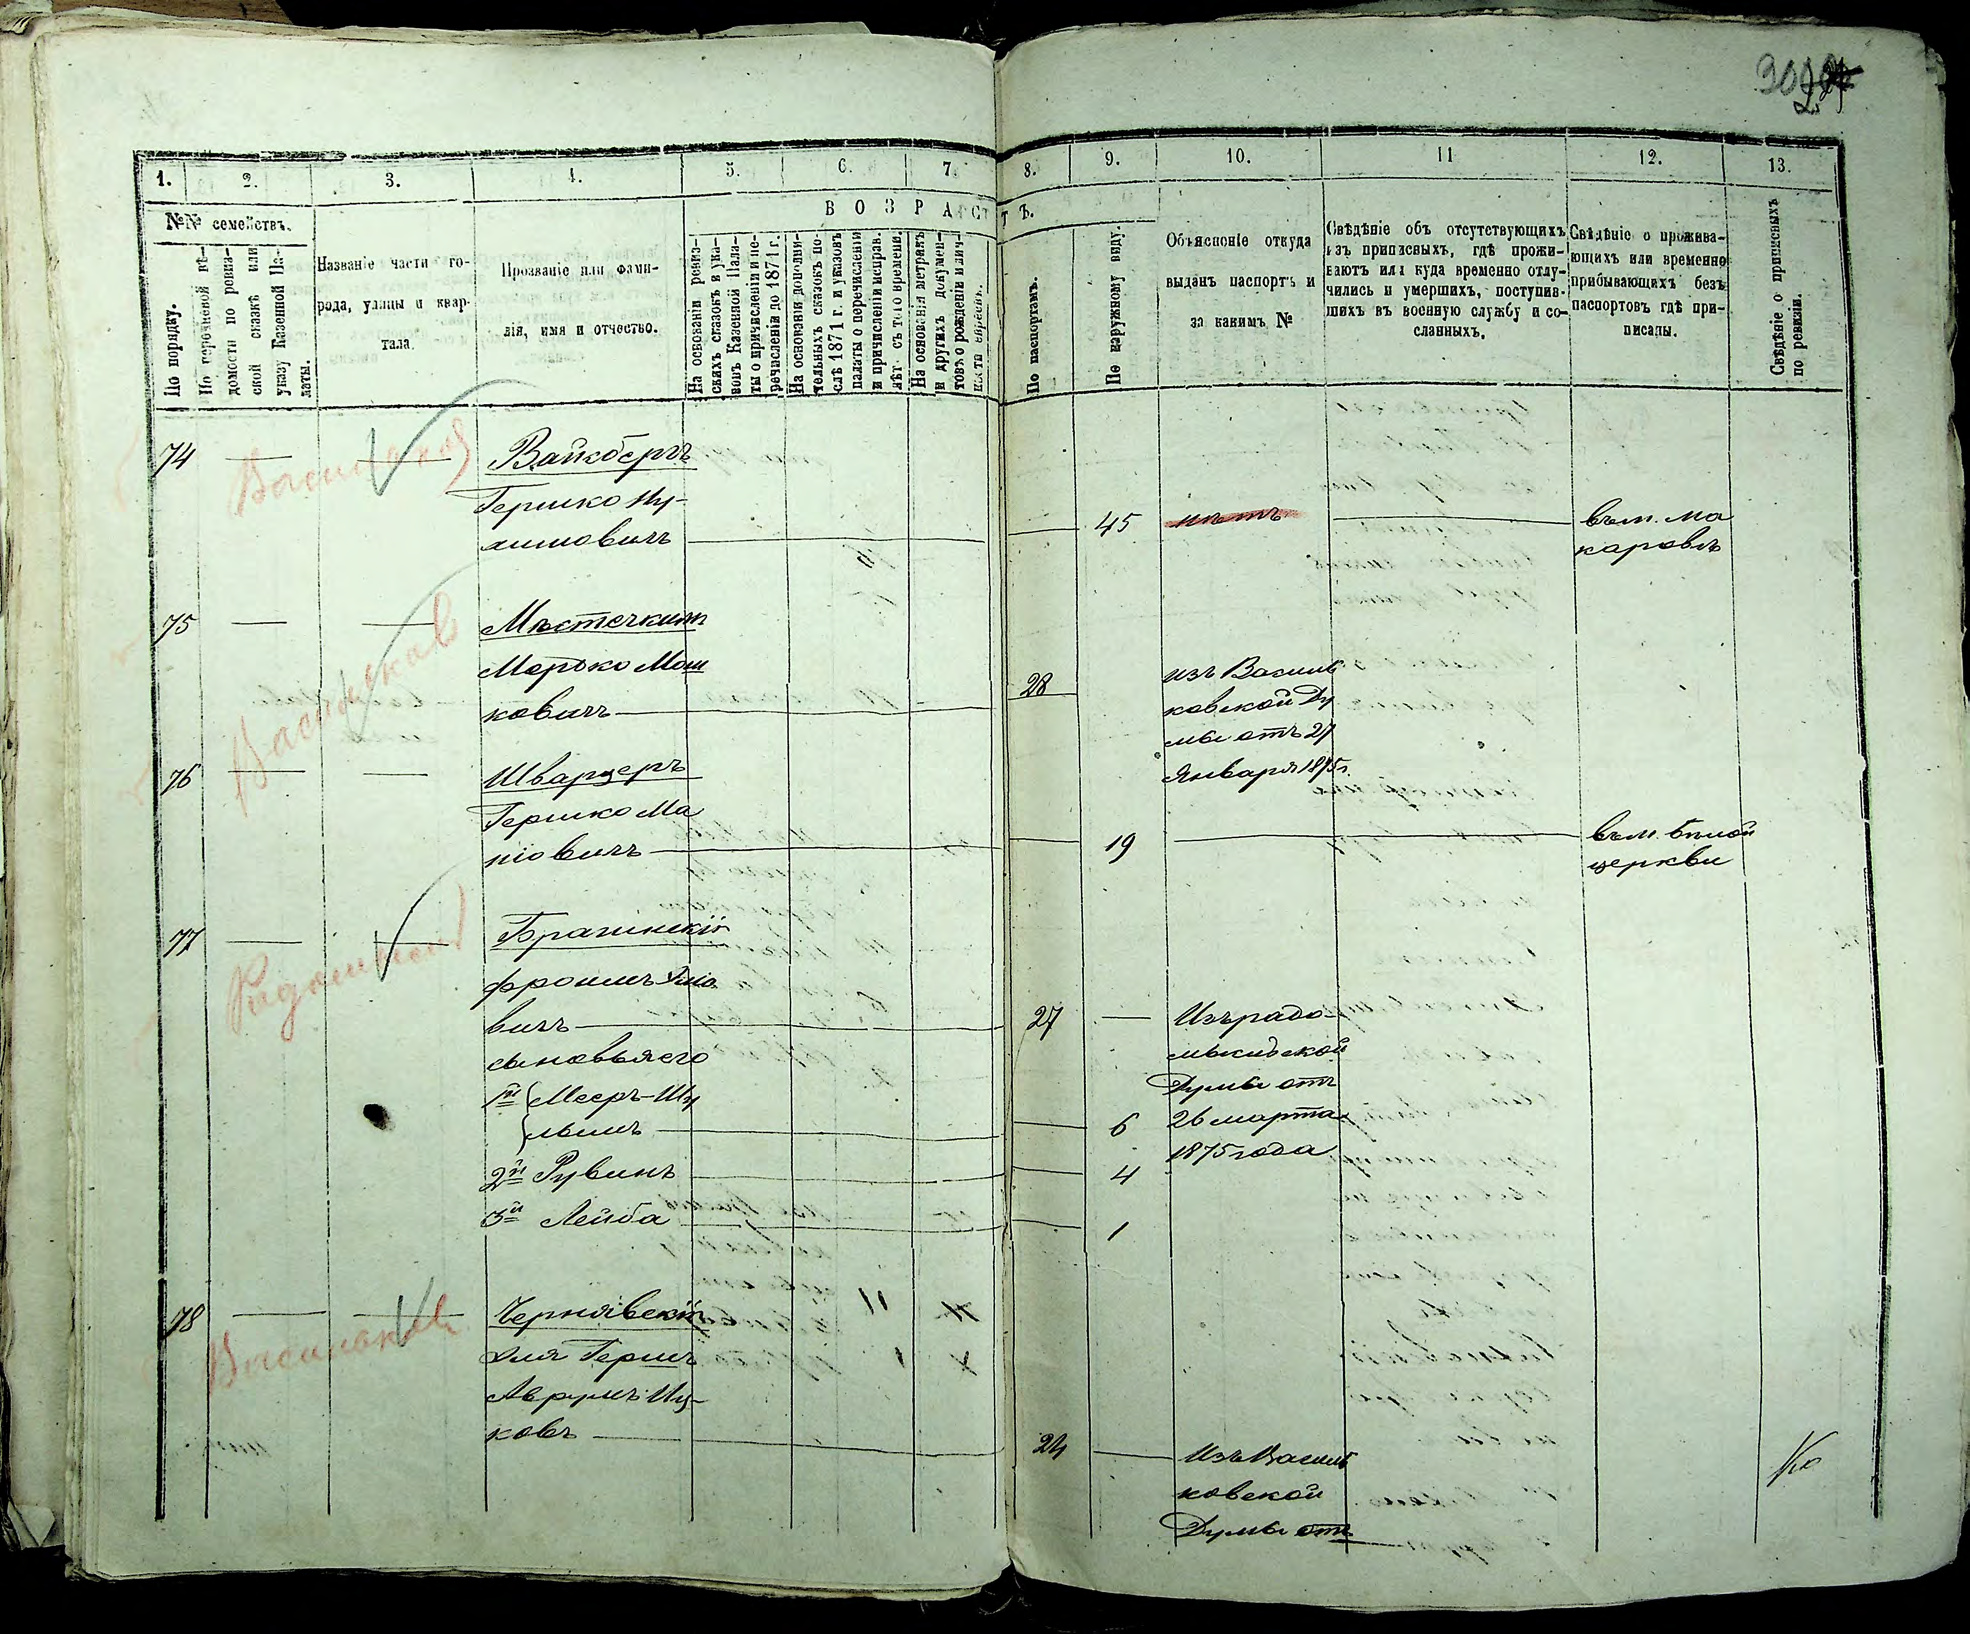 1. 2. 3. 4. 5. 6. 7. 8. 9. 10. 11 12. 13.
№№ семействъ.
В О З Р А С Т Ъ.
По порядку.
указу Казенной Па-
латы.
Названіе части го-
рода, улицы и квар-
тала.
Прозваніе или фами-
лія, имя и отчество.
На основаніи ревиз-
скихъ сказокъ и ука-
зовъ Казенной Пала-
ты о причисленіи и пе-
речисленіи до 1871 г.
На основаніи дополни-
тельныхъ сказокъ по-
слѣ 1871 г. и указовъ
палаты о перечисленіи
и причисленіи исправ.
лѣт съ того времени.
На основаніи метрикъ
и другихъ докумен-
товъ о рожденіи и лич-
По паспортамъ.
По наружному виду.
Объясненіе откуда
выданъ паспортъ и
за какимъ №
Свѣдѣніе объ отсутствующихъ
изъ приписныхъ, гдѣ прожи-
ваютъ или куда временно отлу-
чились и умершихъ, поступив-
шихъ въ военную службу и со-
сланныхъ.
Свѣдѣніе о прожива-
ющихъ или временно
прибывающихъ безъ
паспортовъ гдѣ при-
писаны.
Свѣдѣніе о приписныхъ
по ревизіи.
74 Вайсбергъ
Гершко Ну-
химовичъ 45 нѣтъ въ м. Ма
каровѣ
75 Мѣстечкинъ
Мордко Мош
ковичъ 28 изъ Василь
ковской Ду
мы отъ 27
Января 1875 г.
76 Шварцеръ
Гершко Ма
ніовичъ 19 въ м. Бѣлой
церкви
77 Брагинскій
Фроимъ
вичъ 27 Изъ радо-
мысльской
Думы отъ
26 марта
1875 года
сыновья его
1й Мееръ-Шу
льимъ 6
2й Рувинъ 4
3й Лейба 1
78 Чернявскій
Эля Гершъ
Аврумъ Иц-
ковъ 24 Изъ Василь
ковской
Думы отъ